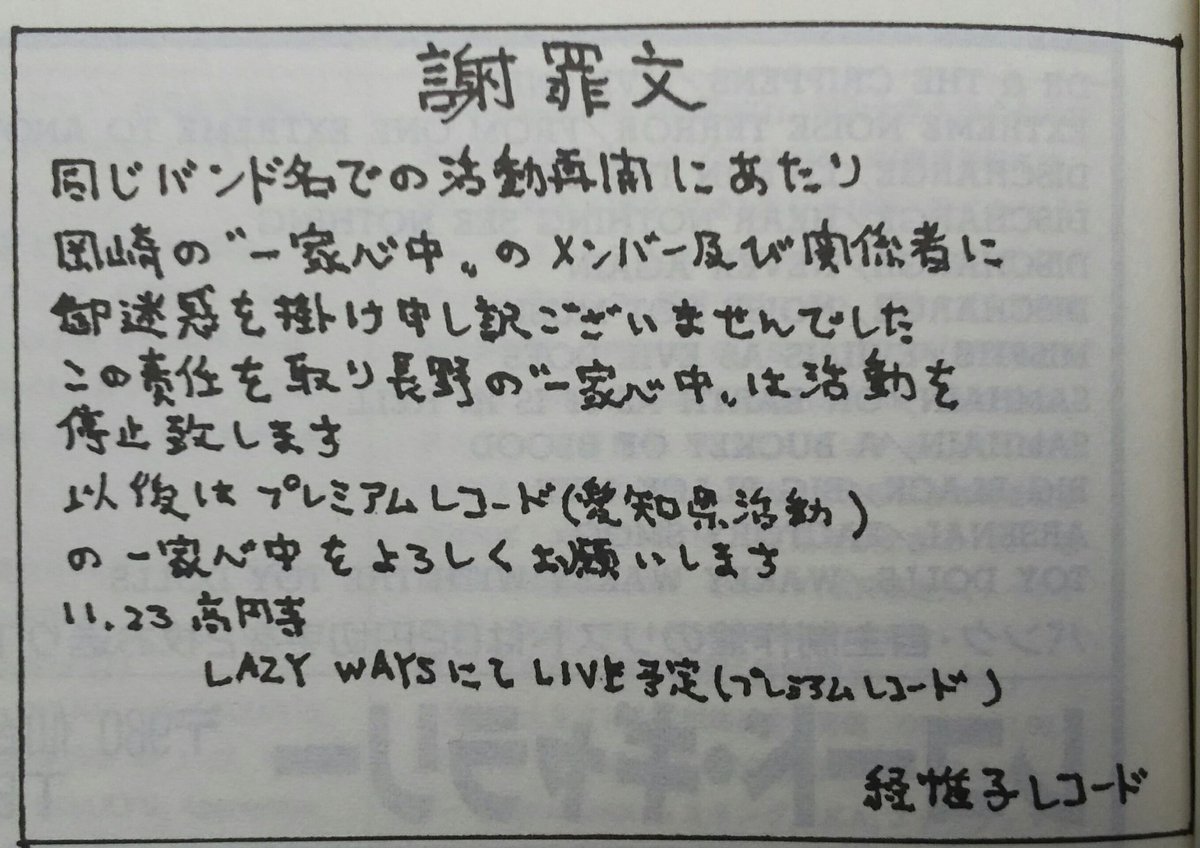 謝罪文
同じバンド名での活動再開にあたり
岡崎の〝一家心中〟のメンバー及び関係者に
御迷惑を掛け申し訳ございませんでした
この責任を取り長野の〝一家心中〟は活動を
停止致します
以後はプレミアムレコード(愛知県活動)
の一家心中をよろしくお願いします
11.23 高円寺
LAZY WAYSにてLIVE予定(プレミアムレコード)
経惟子レコード